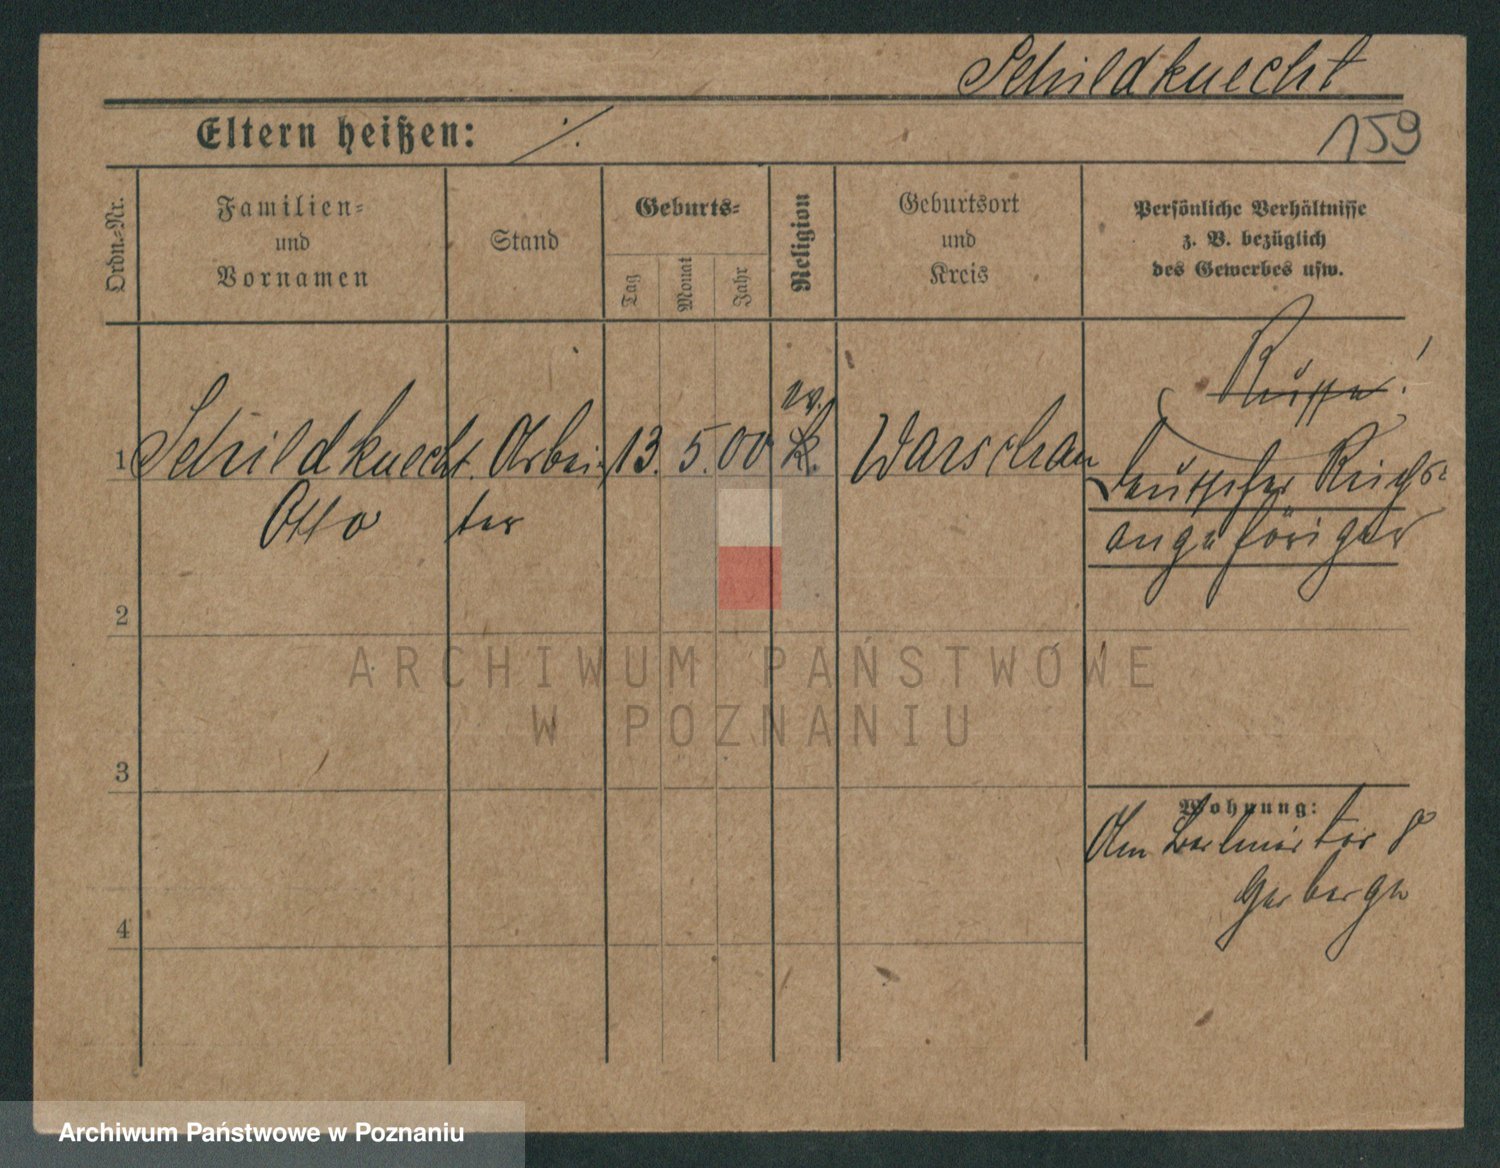 Schildknecht
Eltern heißen: ./.
159
Ordn.-Nr.
Familien-
und
Vornamen
Stand
Geburts-
Tag
Monat
Jahr
Religion
Geburtsort
und
Kreis
Persönliche Verhältnisse
z. B. bezüglich
des Gewerbes usw.
Russe!
ev.
1 Schildknecht. Arbei- 13. 5. 00 k. Warschau
Otto ter
Deutscher Reichs-
angehöriger
2
ARCHIWUM PAŃSTWOWE
W POZNANIU
3
Wohnung:
Am Berliner Tor 8
4
Archiwum Państwowe w Poznaniu